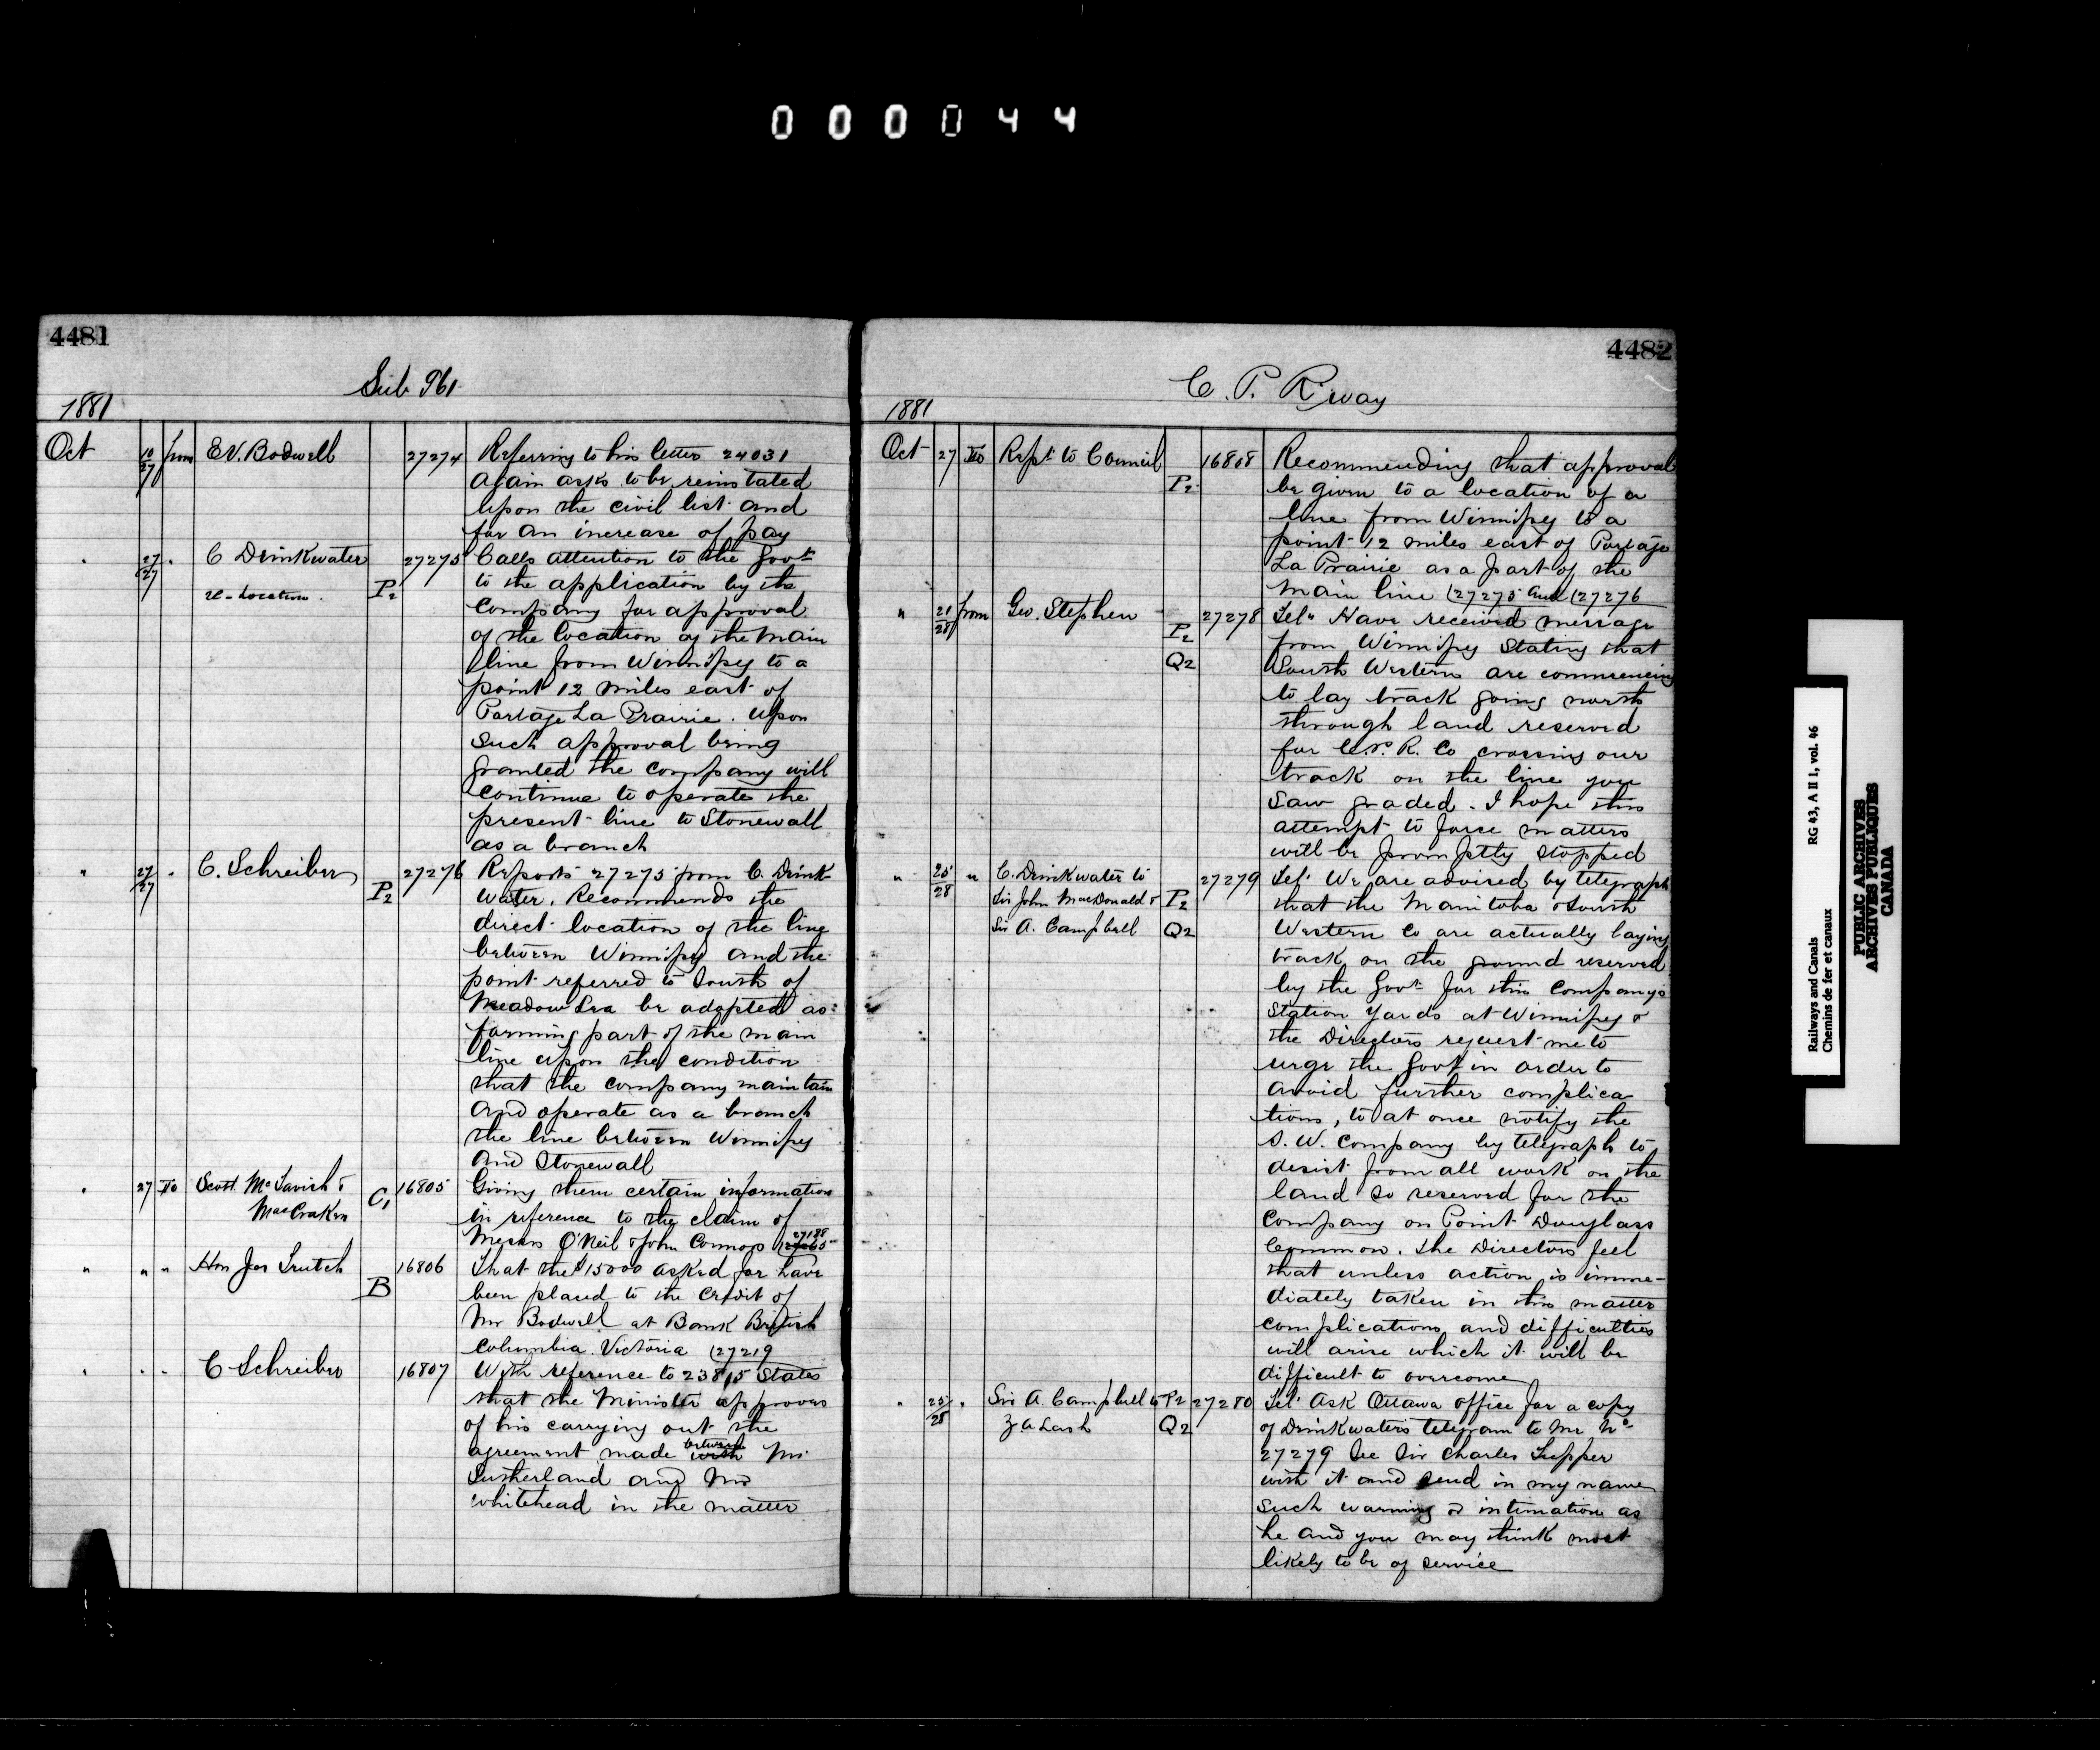 000044
4481
Sub 961
1881
Oct 10/27 from E.V. Bodwell 27274 Referring to his letter 24031
again asks to be reinstated
upon the civil list and
for an increase of pay
" 27/27 " C Drinkwater 27275 Calls attention to the Govt
re-Location. P2 to the application by the
Company for approval
of the location of the main
line from Winnipeg to a
point 12 miles east of
Portage La Prairie. Upon
such approval being
granted the company will
continue to operate the
present line to Stonewall
as a branch
" 27/27 " C. Schreiber P2 27276 Reports 27275 from C. Drink
water. Recommends the
direct location of the line
between Winnipeg and the
point referred to South of
Meadow Lea be adopted as
forming part of the main
line upon the condition
that the company maintain
and operate as a branch
the line between Winnipeg
and Stonewall
" 27 To Scott McTavish & C1 16805 Giving them certain information
MacCraken in reference to the claim of
Messrs O'Neil & John Connors 27188
" " " Hon Jos Trutch B 16806 That the $15000 asked for have
been placed to the credit of
Mr Bodwell at Bank British
Columbia. Victoria (27219
" " " C Schreiber 16807 With reference to 23815 States
that the Minister approves
of his carrying out the
agreement made with between Mr
Sutherland and Mr
Whitehead in the matter
4482
C. P. R'way
1881
Oct 27 To Rept to Council P2 16808 Recommending that approval
be given to a location of a
line from Winnipeg to a
point 12 miles east of Portage
La Prairie as a part of the
main line (27275 and (27276
" 21/28 from Geo. Stephen P2 27278 Tel" Have received message
Q2 from Winnipeg Stating that
South Western are commencing
to lay track going north
through land reserved
for C.P.R. Co crossing our
track on the line you
saw graded. I hope this
attempt to force matters
will be promptly stopped
" 25/28 " C. Drinkwater to 27279 Tel. We are advised by telegraph
Sir John MacDonald & P2 that the Manitoba & South
Sir A. Campbell Q2 Western Co are actually laying
track on the ground reserved
by the Govt for this Company's
Station Yards at Winnipeg &
the Directors request me to
urge the Govt in order to
avoid further complica
tions, to at once notify the
S. W. Company by telegraph to
desist from all work on the
land so reserved for the
Company on Point Douglass
Common. The Directors feel
that unless action is imme-
diately taken in this matter
complications and difficulties
will arise which it will be
difficult to overcome
" 25/28 " Sir A. Campbell to P2 27280 Tel. Ask Ottawa office for a copy
Z A Lash Q2 of Drinkwaters telegram to me No
27279 See Sir Charles Tupper
with it and send in my name
such warning & intimation as
he and you may think most
likely to be of service
Railways and Canals RG 43, A II 1, vol. 46
Chemins de fer et canaux
PUBLIC ARCHIVES
ARCHIVES PUBLIQUES
CANADA